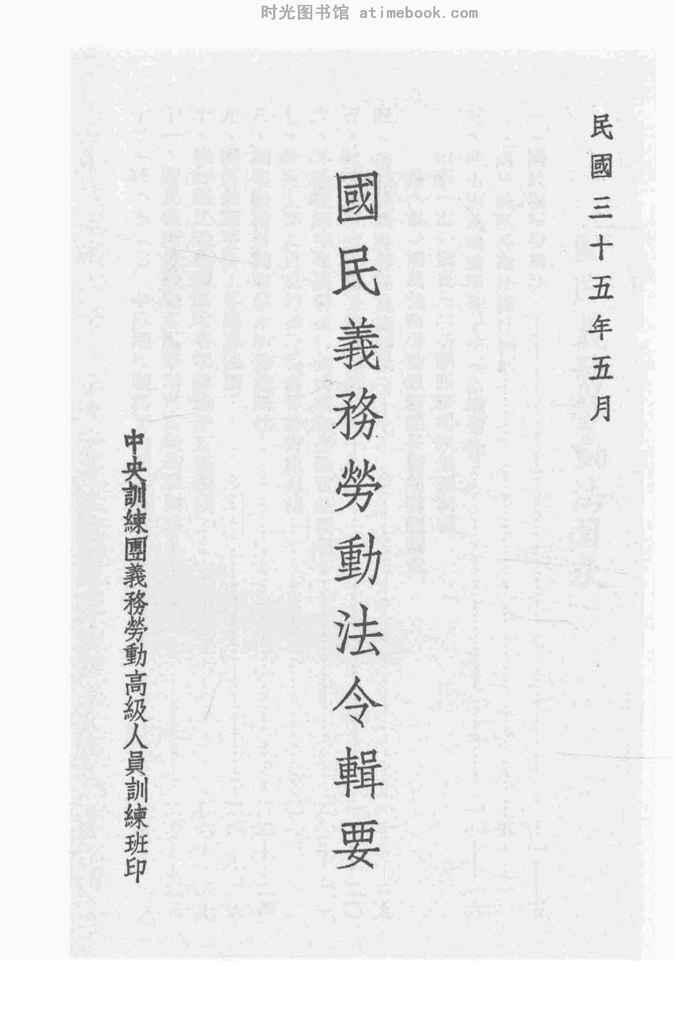 时光图书馆 atimebook.com
民國三十五年五月
國民義務勞動法令輯要
中央訓練團義務勞動高級人員訓練班印